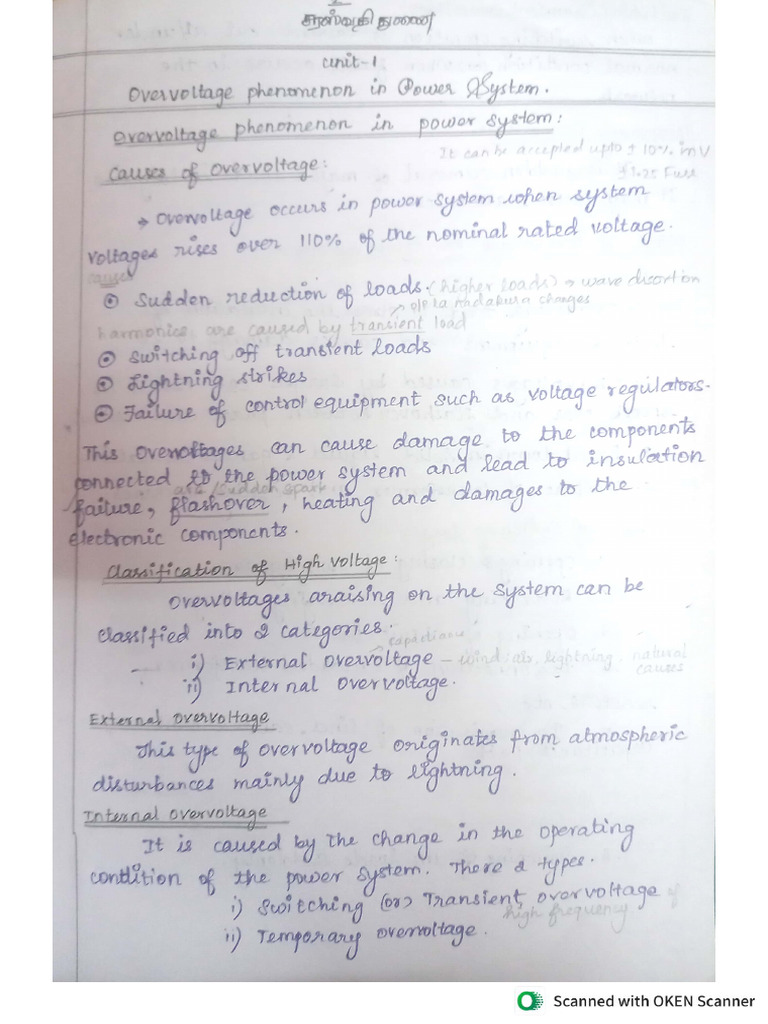 சரஸ்வதி துணை
Unit-1
Overvoltage phenomenon in Power System.
Overvoltage phenomenon in power system:
It can be accepted upto ± 10% in V
Causes of overvoltage:
→ Overvoltage occurs in power system when system
voltages rises over 110% of the nominal rated voltage.
causes
⊙ Sudden reduction of loads. (higher loads) → wave disortion
harmonics are caused by transient load
⊙ Switching off transient loads
⊙ Lightning strikes
⊙ Failure of control equipment such as voltage regulators.
This Overvoltages can cause damage to the components
connected to the power system and lead to insulation
arc / sudden spark
failure, flashover, heating and damages to the
electronic components.
Classification of High voltage:
Overvoltages araising on the system can be
classified into 2 categories.
capacitance
i) External overvoltage - wind, lightning, natural
causes
ii) Internal Overvoltage.
External overvoltage
This type of overvoltage originates from atmospheric
disturbances mainly due to lightning.
Internal overvoltage
It is caused by the change in the operating
condition of the power system. There 2 types.
i) Switching (or) Transient overvoltage of
high frequency
ii) Temporary overvoltage.
Scanned with OKEN Scanner